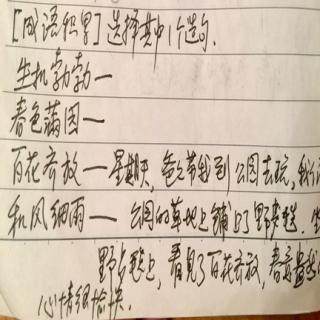 [成语积累]选择其中1个造句.
生机勃勃—
春色满园—
百花齐放—星期天,爸爸带我到公园去玩,我们
和风细雨—公园的草地上铺上了野餐毯.坐
野餐毯上,看见了百花齐放,春意盎然
心情很愉快.